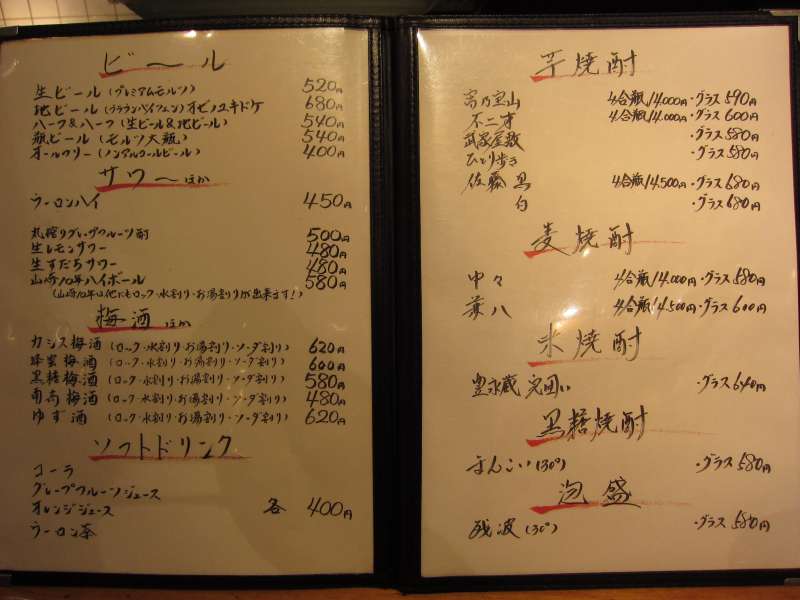 ビール
生ビール(プレミアムモルツ) 520円
地ビール(ブラウンバイツェン)オゼノユキドケ 680円
ハーフ&ハーフ(生ビール&地ビール) 540円
瓶ビール(モルツ大瓶) 540円
オールフリー(ノンアルコールビール) 400円
サワーほか
ウーロンハイ 450円
丸搾りグレープフルーツ酎 500円
生レモンサワー 480円
生すだちサワー 480円
山崎10年ハイボール 580円
(山崎10年は他にもロック・水割り・お湯割りが出来ます!)
梅酒ほか
カシス梅酒(ロック・水割り・お湯割り・ソーダ割り) 620円
蜂蜜梅酒(ロック・水割り・お湯割り・ソーダ割り) 600円
黒糖梅酒(ロック・水割り・お湯割り・ソーダ割り) 580円
南高梅酒(ロック・水割り・お湯割り・ソーダ割り) 480円
ゆず酒(ロック・水割り・お湯割り・ソーダ割り) 620円
ソフトドリンク
コーラ
グレープフルーツジュース
オレンジジュース 各 400円
ウーロン茶
芋焼酎
富乃宝山 4合瓶/4.000円・グラス590円
不二才 4合瓶/4.000円・グラス600円
武家屋敷 ・グラス580円
ひとり歩き ・グラス580円
佐藤 黒 4合瓶/4.500円・グラス680円
白 ・グラス680円
麦焼酎
中々 4合瓶/4.000円・グラス580円
兼八 4合瓶/4.500円・グラス600円
米焼酎
豊永蔵 完囲い ・グラス640円
黒糖焼酎
まんこい(30°) ・グラス580円
泡盛
残波(30°) ・グラス580円